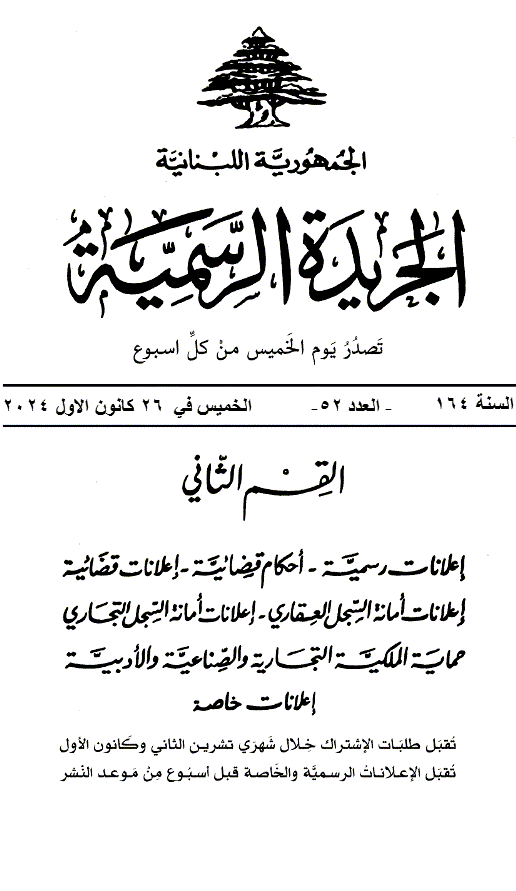 الجُمهُوريَّة اللبْنانيَّة
الجَريدَة الرسَّميَّة
تَصدُرُ يَوم الخَميس منْ كلِّ اسبوع
السنة ١٦٤ - العدد ٥٢- الخميس في ٢٦ كانون الاول ٢٠٢٤
القِسْم الثّاني
إعلانات رسميَّة - أحكام قضائيَّة - إعلانات قضائية
إعلانات أمانة السِّجل العِقاري - إعلانات أمانة السِّجل التجاري
حماية الملكيَّة التجارية والصِّناعيَّة والأدبيَّة
إعلانات خاصة
تُقبَل طلبَات الإشتراك خِلال شَهرَي تشرين الثاني وكَانون الأول
تُقبَل الإعلاناتُ الرسميَّة والخَاصة قبل أسبُوع مِنْ مَوعد النّشر